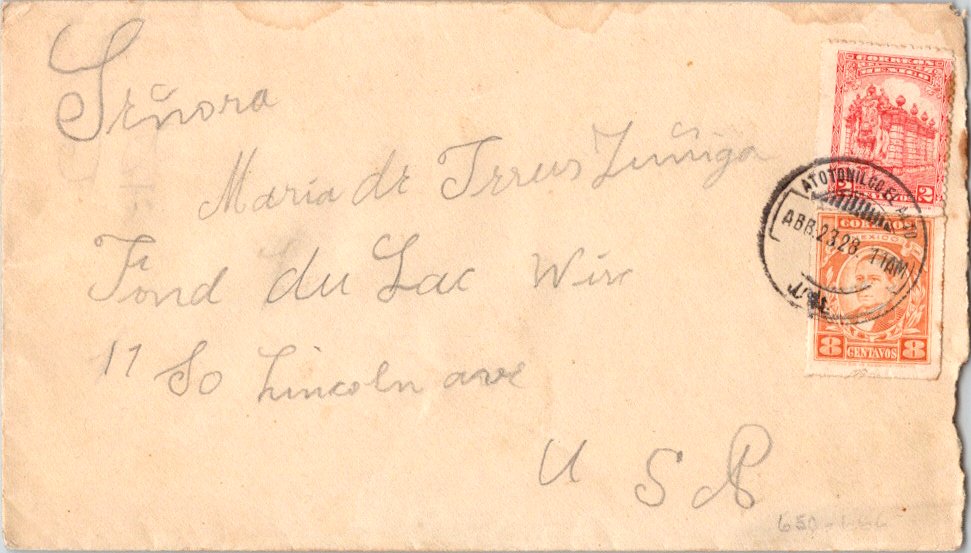 Señora
Maria de Jesus Zuñiga
Fond du Lac Wisc
11 So Lincoln ave
U S A
CORREOS
MEXICO
2 CENTAVOS 2
ATOTONILCO EL ALTO
ABR. 23 28. 11 AM
JAL.
CORREOS
MEXICO
8 CENTAVOS 8
650-166